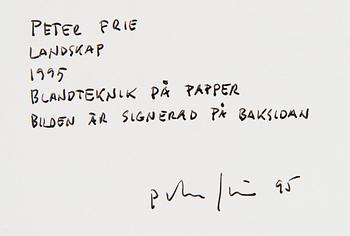 PETER FRIE
LANDSKAP
1995
BLANDTEKNIK PÅ PAPPER
BILDEN ÄR SIGNERAD PÅ BAKSIDAN
Peter Frie 95